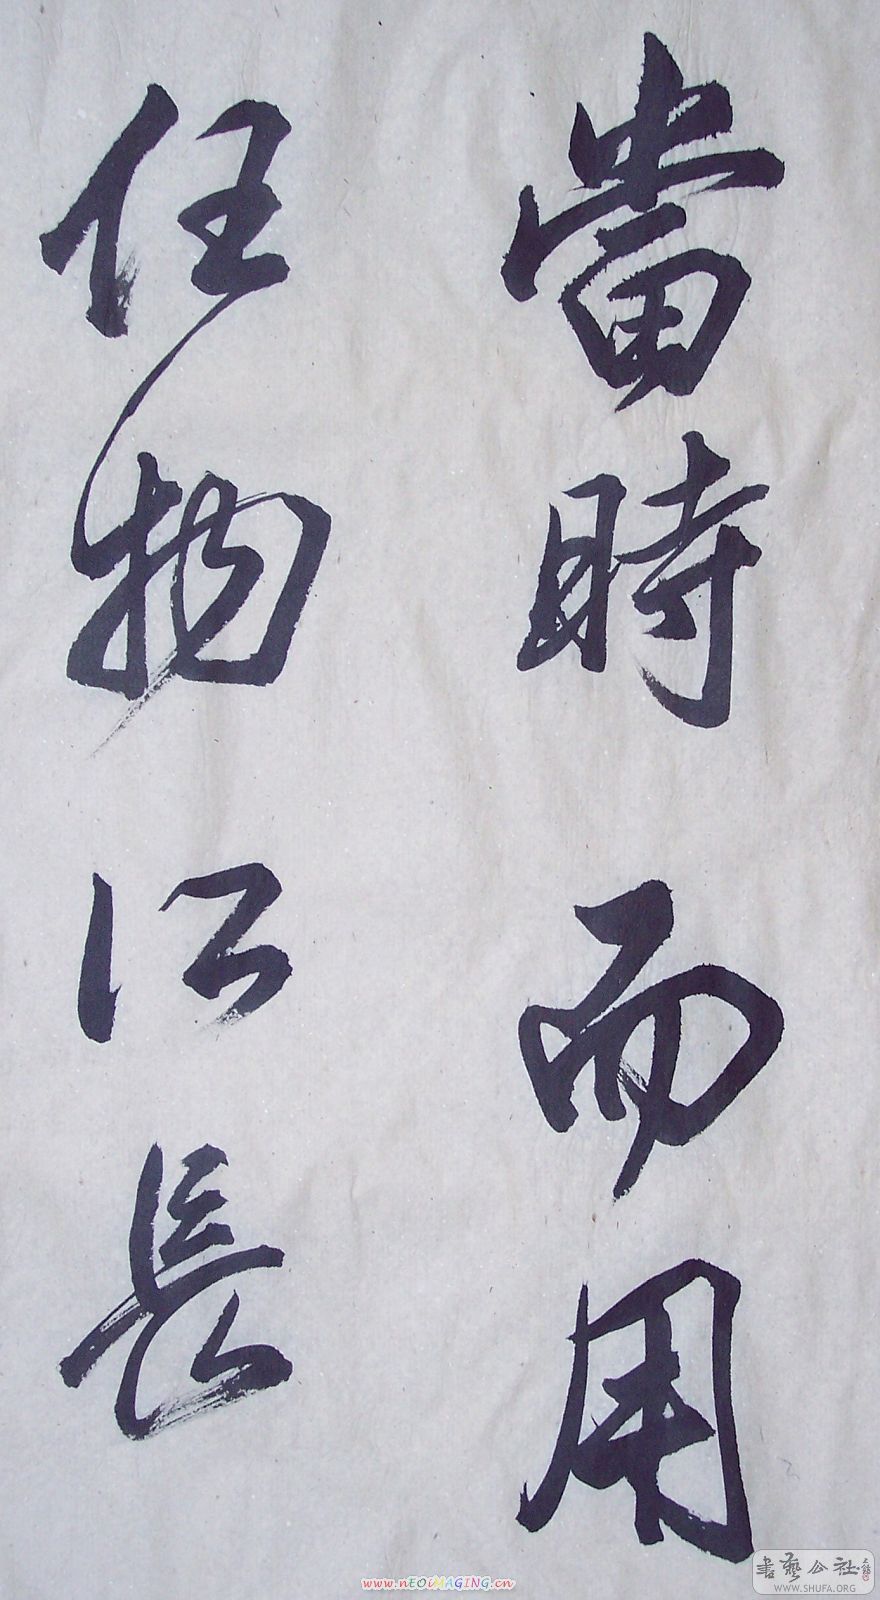 當時而用
任物以長
書藝公社
WWW.SHUFA.ORG
www.nEOiMAGING.cn